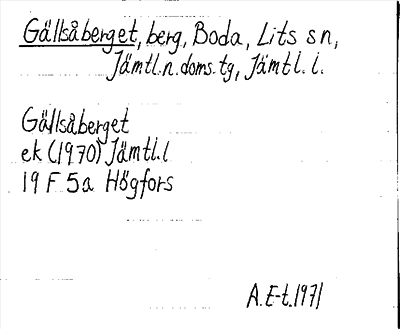 Gällsåberget, berg, Boda, Lits sn,
Jämtl.n.doms.tg, Jämtl. l.
Gällsåberget
ek (1970) Jämtl.l
19 F 5a Högfors
A.E-t.1971